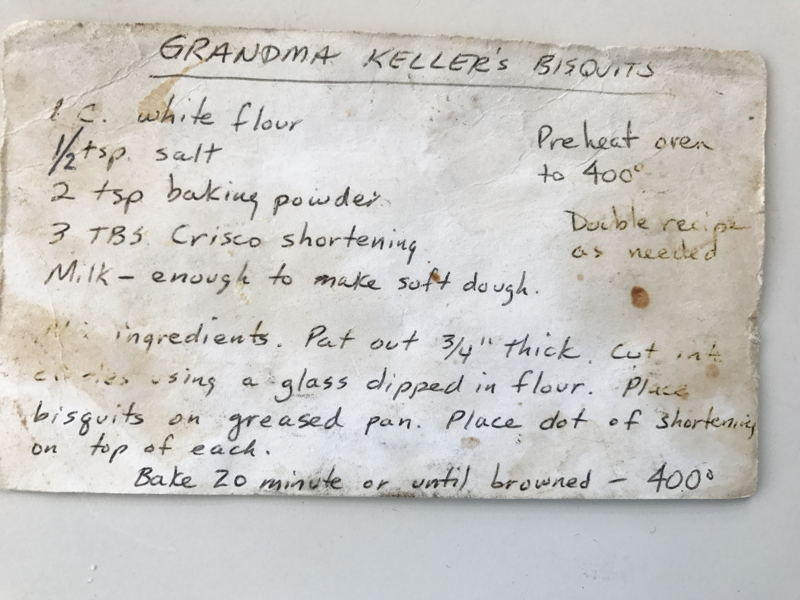 GRANDMA KELLER'S BISQUITS
1 C. white flour
1/2 tsp. salt
2 tsp baking powder
3 TBS Crisco shortening
Milk - enough to make soft dough.
Preheat oven
to 400°
Double recipe
as needed
ingredients. Pat out 3/4" thick. Cut
using a glass dipped in flour. Place
bisquits on greased pan. Place dot of shortening
on top of each.
Bake 20 minute or until browned - 400°